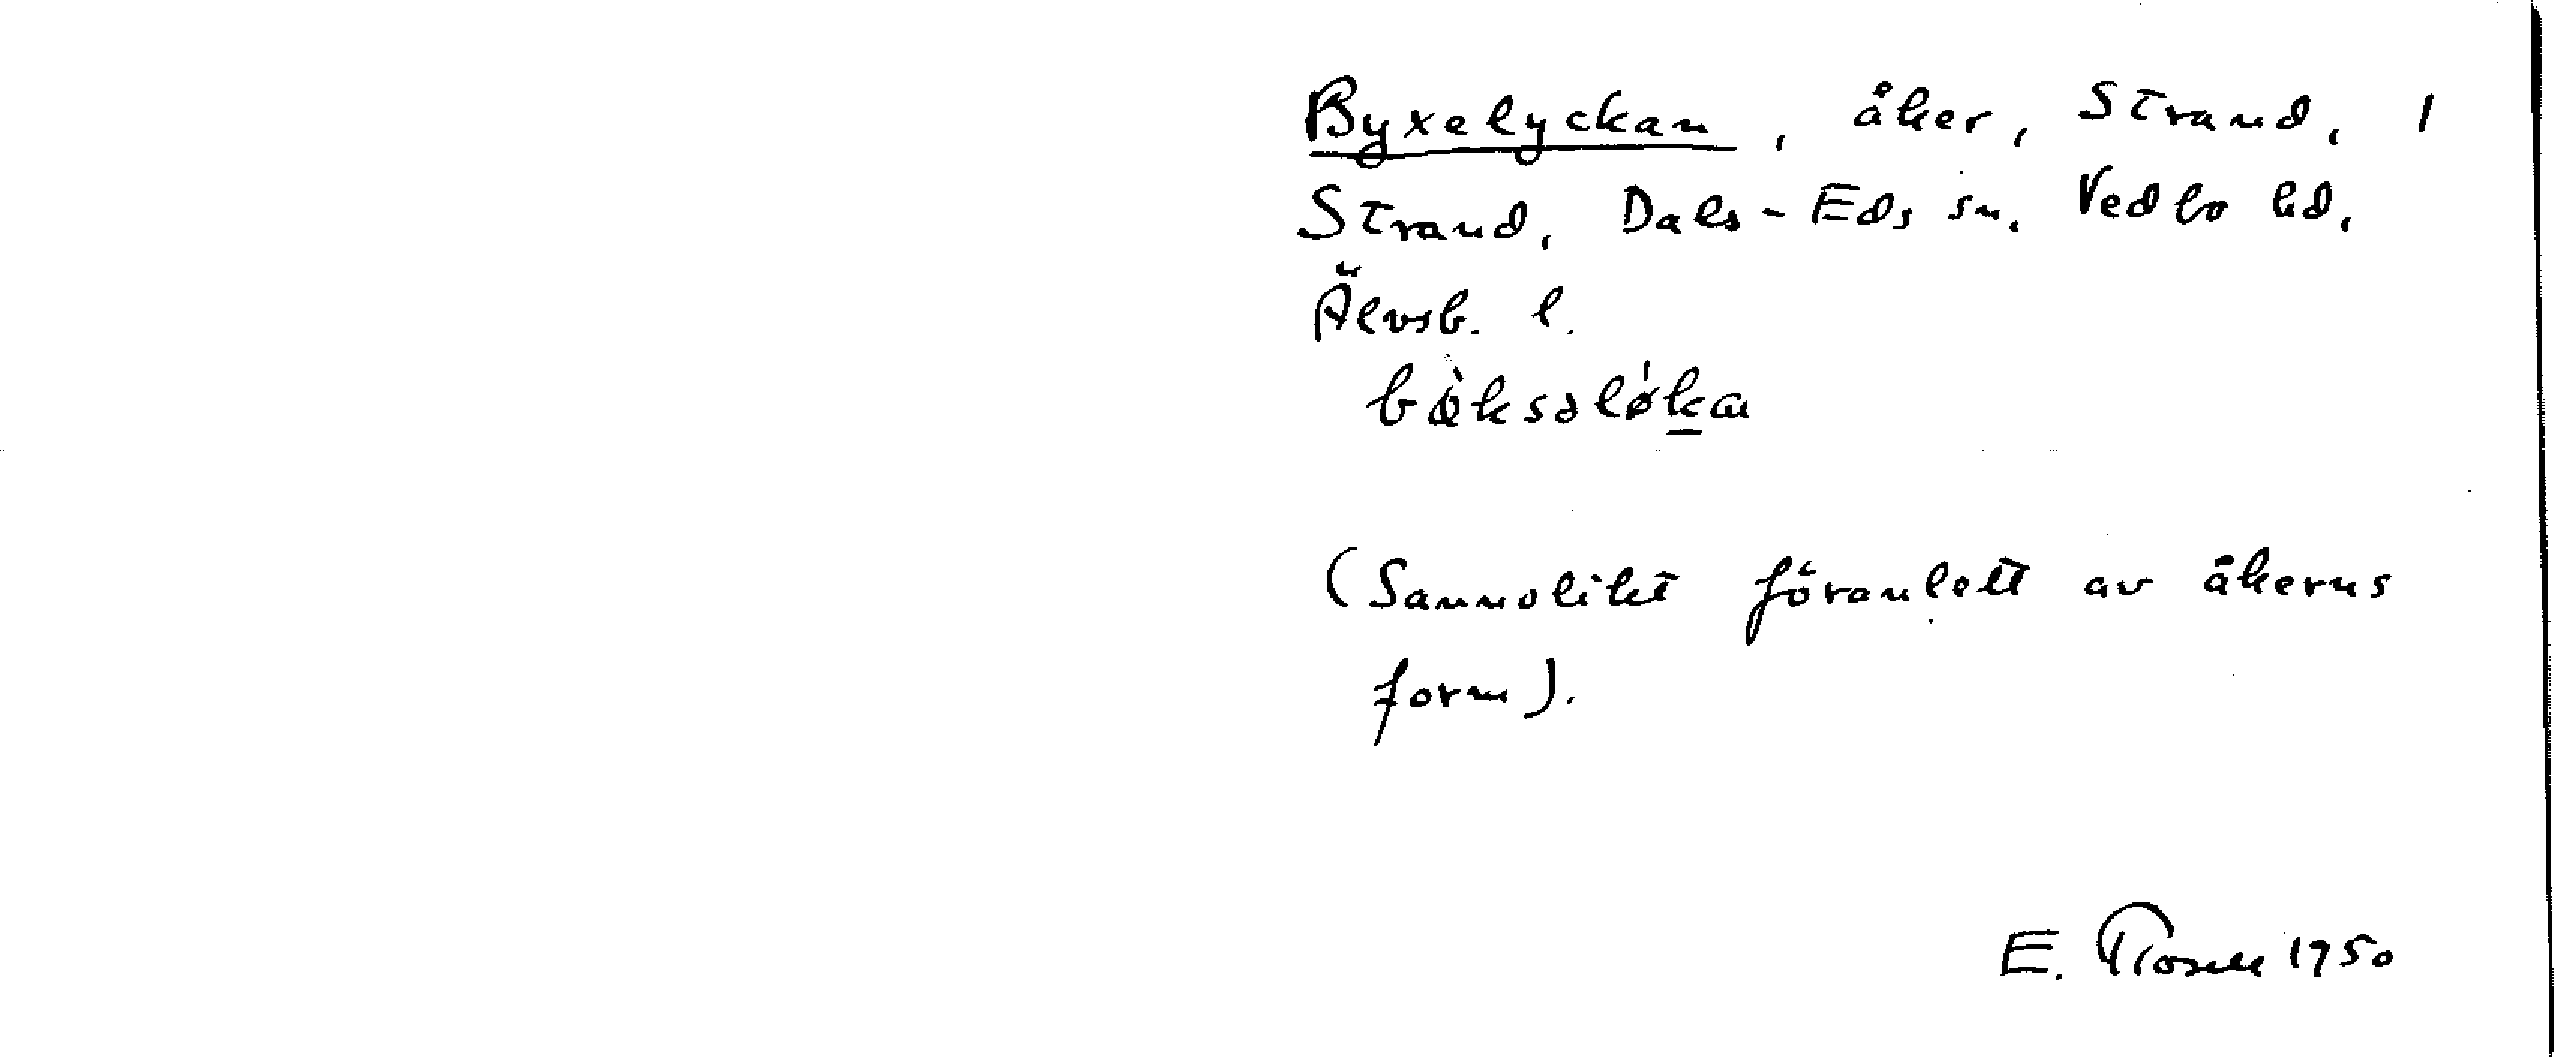 Byxelyckan, åker, Strand, 1
Strand, Dals-Eds sn. Vedbo hd,
Älvsb. l.
bø̀ksəlǿka
(Sannolikt föranlett av åkerns
form).
E. 1950